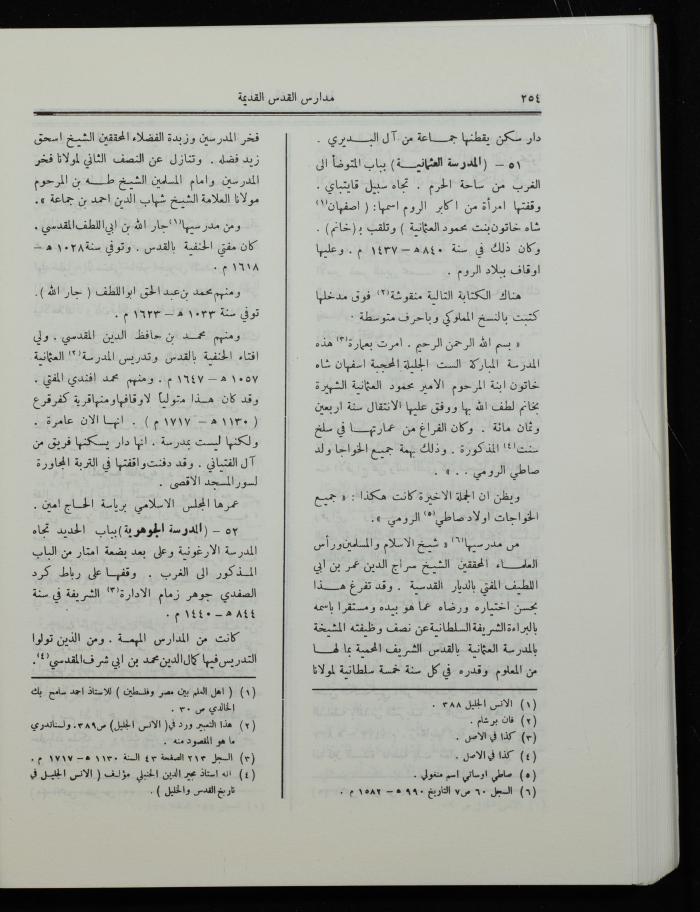 ٢٥٤
مدارس القدس القديمة
دار سكن يقطنها جماعة من آل البديري .
٥١ – (المدرسة العثمانية) بباب المتوضأ الى
الغرب من ساحة الحرم . تجاه سبيل قايتباي .
وقفتها امرأة من اكابر الروم اسمها : ( اصفهان (١)
شاه خاتون بنت محمود العثمانية ) وتلقب بـ (خانم) .
وكان ذلك في سنة ٨٤٠ هـ – ١٤٣٧ م . وعليها
اوقاف ببلاد الروم .
هناك الكتابة التالية منقوشة (٢) فوق مدخلها
كتبت بالنسخ المملوكي وباحرف متوسطة .
« بسم الله الرحمن الرحيم . امرت بعمارة (٣) هذه
المدرسة المباركة الست الجليلة المحجبة اسفهان شاه
خاتون ابنة المرحوم الامير محمود العثمانية الشهيرة
بخانم لطف الله بها ووفق عليها الانتقال سنة اربعين
وثمان مائة . وكان الفراغ من عمارتها في سلخ
سنت (٤) المذكورة . وذلك بهمة جميع الخواجا ولد
صاطي الرومي . . »
ويظن ان الجملة الاخيرة كانت هكذا : « جميع
الخواجات اولاد صاطي (٥) الرومي » .
من مدرسيها (٦) « شيخ الاسلام والمسلمين ورأس
العلماء المحققين الشيخ سراج الدين عمر بن ابي
اللطيف المفتي بالديار القدسية . وقد تفرغ هذا
بحسن اختياره ورضاه عما هو بيده ومستقرا باسمه
بالبراءة الشريفة السلطانية عن نصف وظيفته المشيخة
بالمدرسة العثمانية بالقدس الشريف المحمية بما لها
من المعلوم وقدره في كل سنة خمسة سلطانية لمولانا
(١) الانس الجليل ٣٨٨ .
(٢) فان برشام .
(٣) كذا في الاصل .
(٤) كذا في الاصل .
(٥) صاطي اوساتي اسم منغولي .
(٦) السجل ٦٠ ص ٧ التاريخ ٩٩٠ ه – ١٥٨٢ م .
فخر المدرسين وزبدة الفضلاء المحققين الشيخ اسحق
زيد فضله . وتنازل عن النصف الثاني لمولانا فخر
المدرسين وامام المسلمين الشيخ طه بن المرحوم
مولانا العلامة الشيخ شهاب الدين احمد بن جماعة » .
ومن مدرسيها (١) جار الله بن ابي اللطف المقدسي .
كان مفتي الحنفية بالقدس . وتوفي سنة ١٠٢٨ هـ –
١٦١٨ م .
ومنهم محمد بن عبد الحق ابو اللطف ( جار الله ) .
توفي سنة ١٠٣٣ هـ – ١٦٢٣ م .
ومنهم محمد بن حافظ الدين المقدسي . ولي
افتاء الحنفية بالقدس وتدريس المدرسة (٢) العثمانية
١٠٥٧ هـ – ١٦٤٧ م . ومنهم محمد افندي المفتي .
وقد كان هذا متولياً لاوقافها ومنها قرية كفر قرع
( ١١٣٠ هـ – ١٧١٧ م ) . انها الان عامرة .
ولكنها ليست بمدرسة . انها دار يسكنها فريق من
آل الفتياني . وقد دفنت واقفتها في التربة المجاورة
لسور المسجد الاقصى .
عمرها المجلس الاسلامي برياسة الحاج امين .
٥٢ – (المدرسة الجوهرية) بباب الحديد تجاه
المدرسة الارغونية وعلى بعد بضعة امتار من الباب
المذكور الى الغرب . وقفها على رباط كرد
الصفدي جوهر زمام الادارة (٣) الشريفة في سنة
٨٤٤ هـ – ١٤٤٠ م .
كانت من المدارس المهمة . ومن الذين تولوا
التدريس فيها كمال الدين محمد بن ابي شرف المقدسي (٤) .
(١) ( اهل العلم بين مصر وفلسطين ) للاستاذ احمد سامح بك
الخالدي ص ٣٠ .
(٢) هذا التعبير ورد في ( الانس الجليل ) ص ٣٨٩ . ولست ادري
ما هو المقصود منه .
(٣) السجل ٢١٣ الصفحة ٤٣ السنة ١١٣٠ ه – ١٧١٧ م .
(٤) انه استاذ مجير الدين الحنبلي مؤلف ( الانس الجليل في
تاريخ القدس والخليل ) .